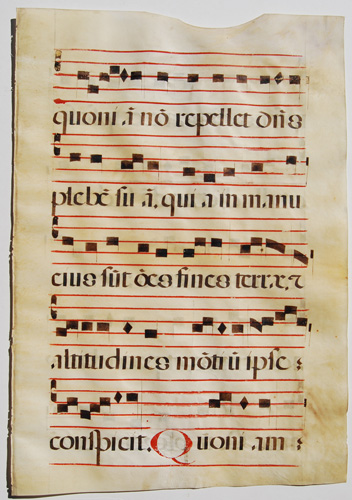 quoni ā nō repellet dn̄s
plebē su ā, qui a in manu
eius sūt ōes fines terræ, ⁊
altitudines mōtiū ipse
conspicit. Quoni am